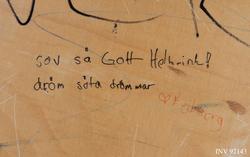 sov så Gott Helmink!
dröm söta drömmar
INV 92143